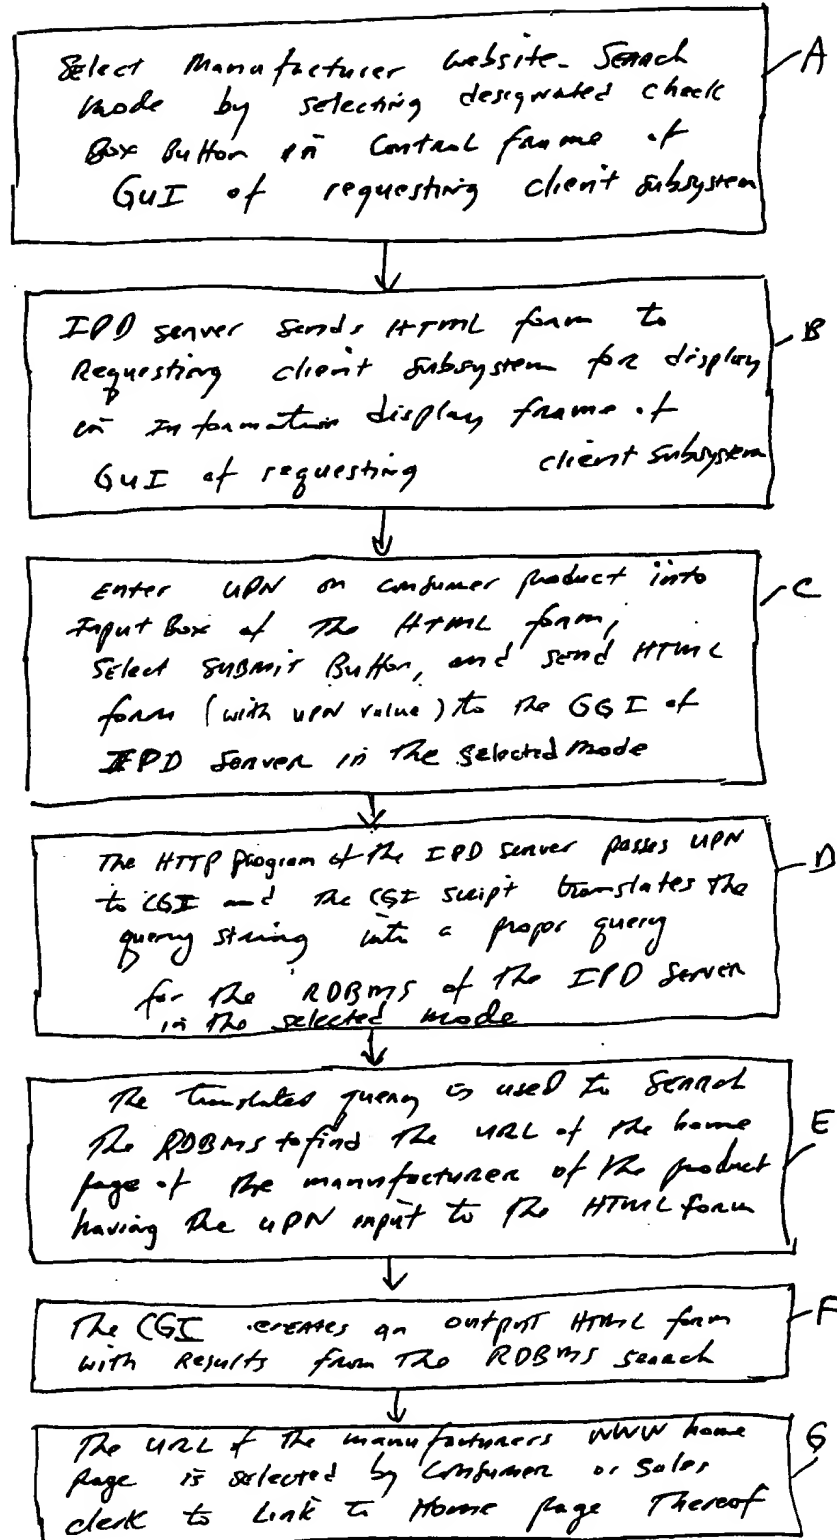 Select Manufacturer Website-Search
Mode by selecting designated check
Box Button in Control frame of
GUI of requesting client subsystem
A
IPD server sends HTML form to
Requesting client subsystem for display
in Information display frame of
GUI of requesting client subsystem
B
Enter UPN on consumer product into
Input Box of the HTML form,
Select SUBMIT Button, and send HTML
form (with UPN value) to the GGI of
IPD Server in the selected mode
C
The HTTP program of the IPD server passes UPN
to CGI and the CGI script translates the
query string into a proper query
for the RDBMS of the IPD server
in the selected mode
D
The translated query is used to search
the RDBMS to find the URL of the home
page of the manufacturer of the product
having the UPN input to the HTML form
E
The CGI creates an output HTML form
with Results from the RDBMS search
F
The URL of the manufacturers WWW home
Page is selected by Consumer or Sales
clerk to Link to Home page Thereof
G